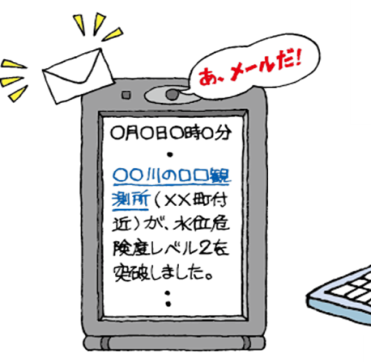 あ、メールだ!
〇月〇日〇時〇分
・
〇〇川の口口観
測所(××町付
近)が、水位危
険度レベル2を
突破しました。
: